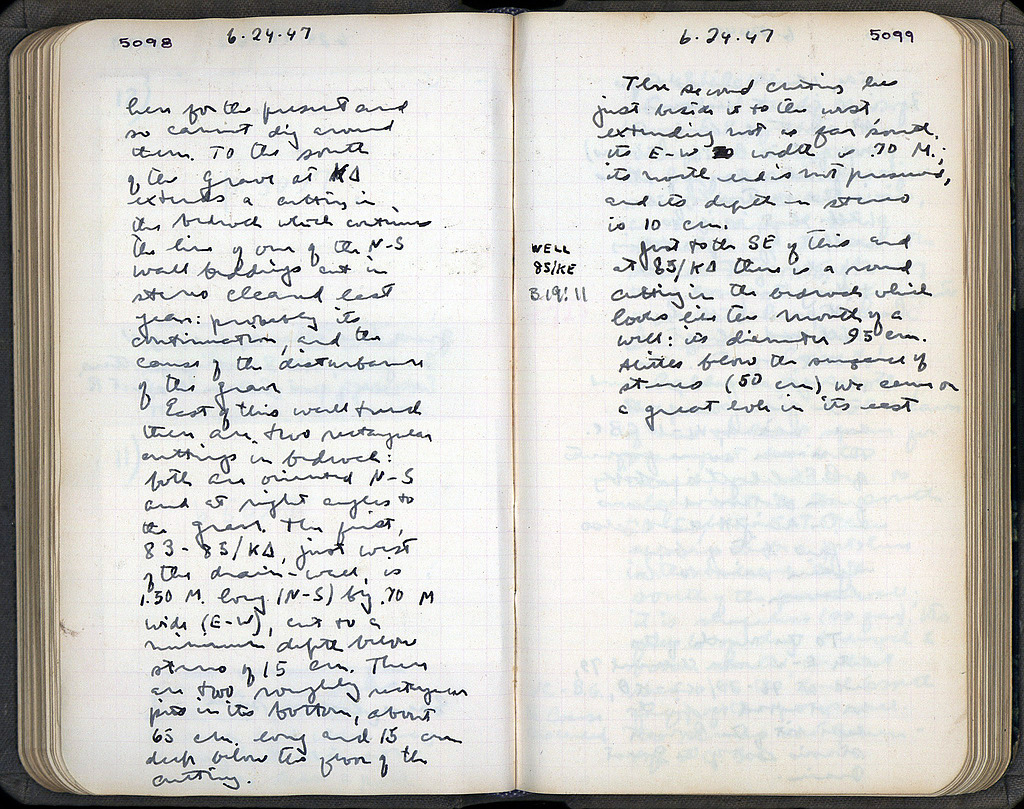 5098
6.24.47
here for the present and
so cannot dig around
them. To the south
of the grave at KΔ
extends a cutting in
the bedrock which continues
the line of one of the N-S
wall beddings cut in
stereo cleaned last
year: probably its
continuation, and the
cause of the disturbance
of the grave
East of this wall trench
there are two rectangular
cuttings in bedrock:
both are oriented N-S
and at right angles to
the grave. The first,
83-85/KΔ, just west
of the drain-well, is
1.50 M. long (N-S) by .70 M
wide (E-W), cut to a
minimum depth below
stereo of 15 cm. There
are two roughly rectangular
pits in its bottom, about
65 cm. long and 15 cm
deep below the floor of the
cutting.
6.24.47
5099
The second cutting lies
just beside it to the west
extending not as far south.
its E-W width is .70 M.;
its north end is not preserved,
and its depth in stereo
is 10 cm.
Just to the SE of this and
WELL
85/KE
at 85/KΔ there is a round
cutting in the bedrock which
looks like the mouth of a
well: its diameter 95 cm.
A little below the surface of
stereo (50 cm) we came on
a great hole in its east